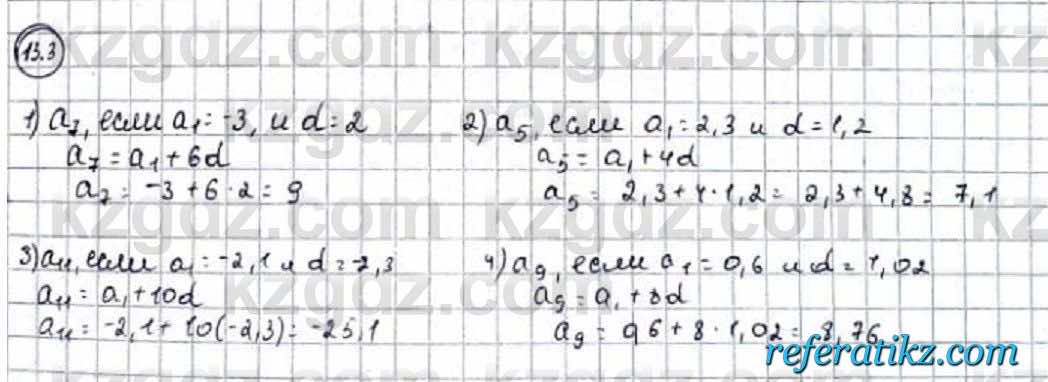 13.3
1) a₇, если a₁ = -3, и d = 2
a₇ = a₁ + 6d
a₇ = -3 + 6 · 2 = 9
2) a₅, если a₁ = 2,3 и d = 1,2
a₅ = a₁ + 4d
a₅ = 2,3 + 4 · 1,2 = 2,3 + 4,8 = 7,1
3) a₁₁, если a₁ = -2,1 и d = -2,3
a₁₁ = a₁ + 10d
a₁₁ = -2,1 + 10(-2,3) = -25,1
4) a₉, если a₁ = 0,6 и d = 1,02
a₉ = a₁ + 8d
a₉ = 0,6 + 8 · 1,02 = 8,76.
kzgdz.com
referatikz.com